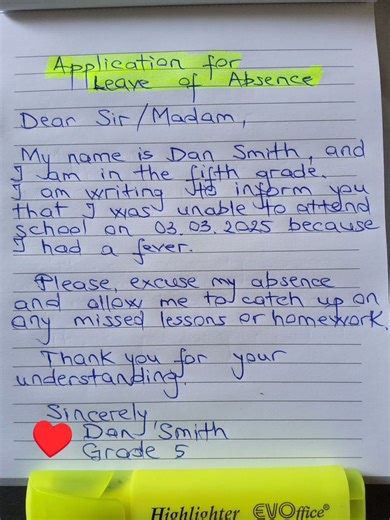 Application for
Leave of Absence
Dear Sir/Madam,
My name is Dan Smith, and
I am in the fifth grade.
I am writing to inform you
that I was unable to attend
school on 03.03.2025 because
I had a fever.
Please, excuse my absence
and allow me to catch up on
any missed lessons or homework.
Thank you for your
understanding.
Sincerely,
Dan Smith
Grade 5
Highlighter EVOffice®